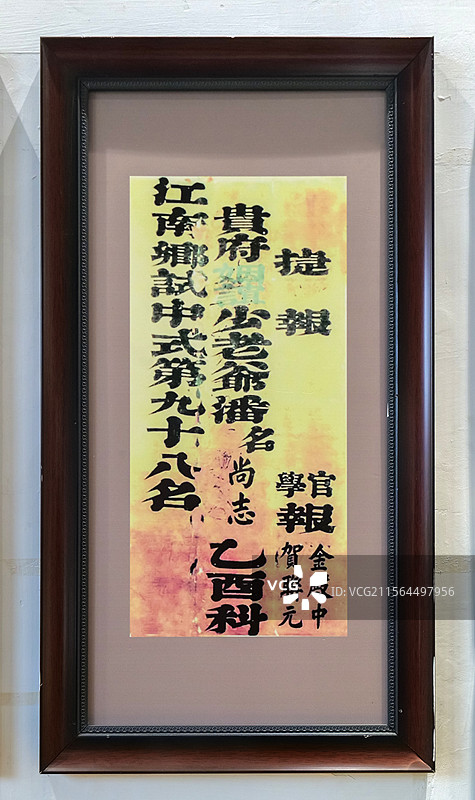 捷報
官
學
報
金殿中
賀
元
貴府
少老爺潘名尚志乙酉科
江南鄉試中式第九十八名
VCG
ID: VCG211564497956